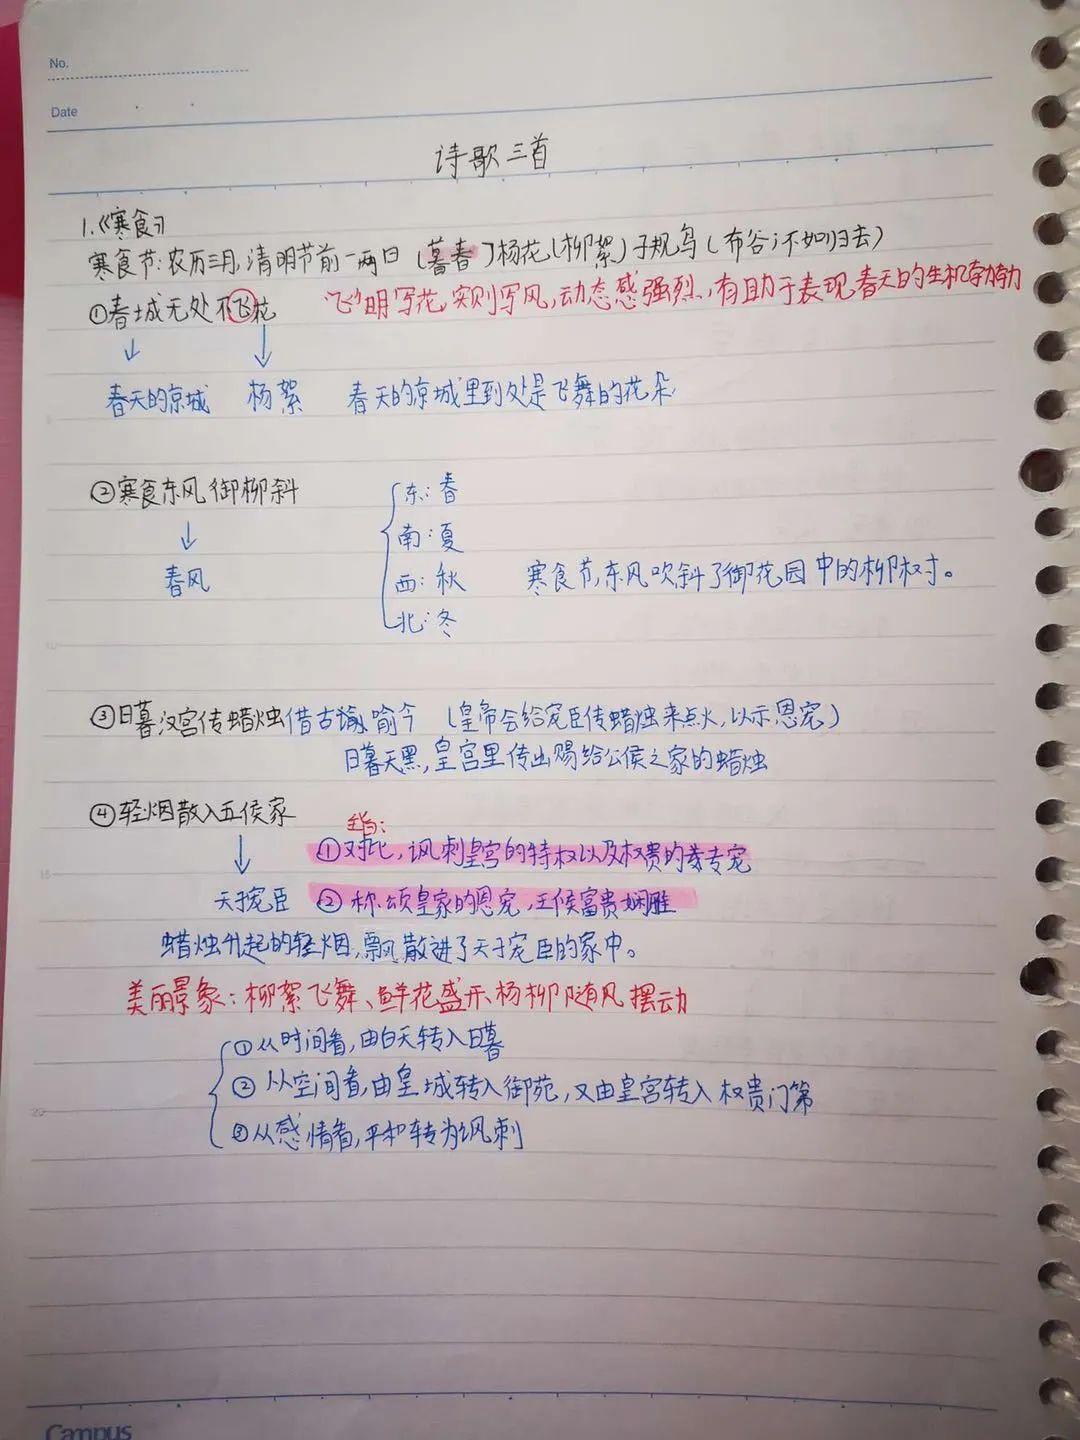 No.
Date
诗歌三首
1.《寒食》
寒食节:农历三月,清明节前一两日(暮春)杨花(柳絮)子规鸟(布谷;不如归去)
①春城无处不飞花 "飞"明写花,实则写风,动态感强烈,有助于表现春天的生机勃勃
春天的京城 杨絮 春天的京城里到处是飞舞的花朵
②寒食东风御柳斜
东:春
南:夏
春风 西:秋 寒食节,东风吹斜了御花园中的柳树。
北:冬
③日暮汉宫传蜡烛 借古喻今 (皇帝会给宠臣传蜡烛来点火,以示恩宠)
日暮天黑,皇宫里传出赐给公侯之家的蜡烛
④轻烟散入五侯家
主旨:
①对比,讽刺皇宫的特权以及权贵的专宠
天子宠臣 ②称颂皇家的恩宠,王侯富贵娴雅
蜡烛升起的轻烟,飘散进了天子宠臣的家中。
美丽景象:柳絮飞舞、鲜花盛开、杨柳随风摆动
①从时间看,由白天转入日暮
②从空间看,由皇城转入御苑,又由皇宫转入权贵门第
③从感情看,平和转为讽刺
Campus